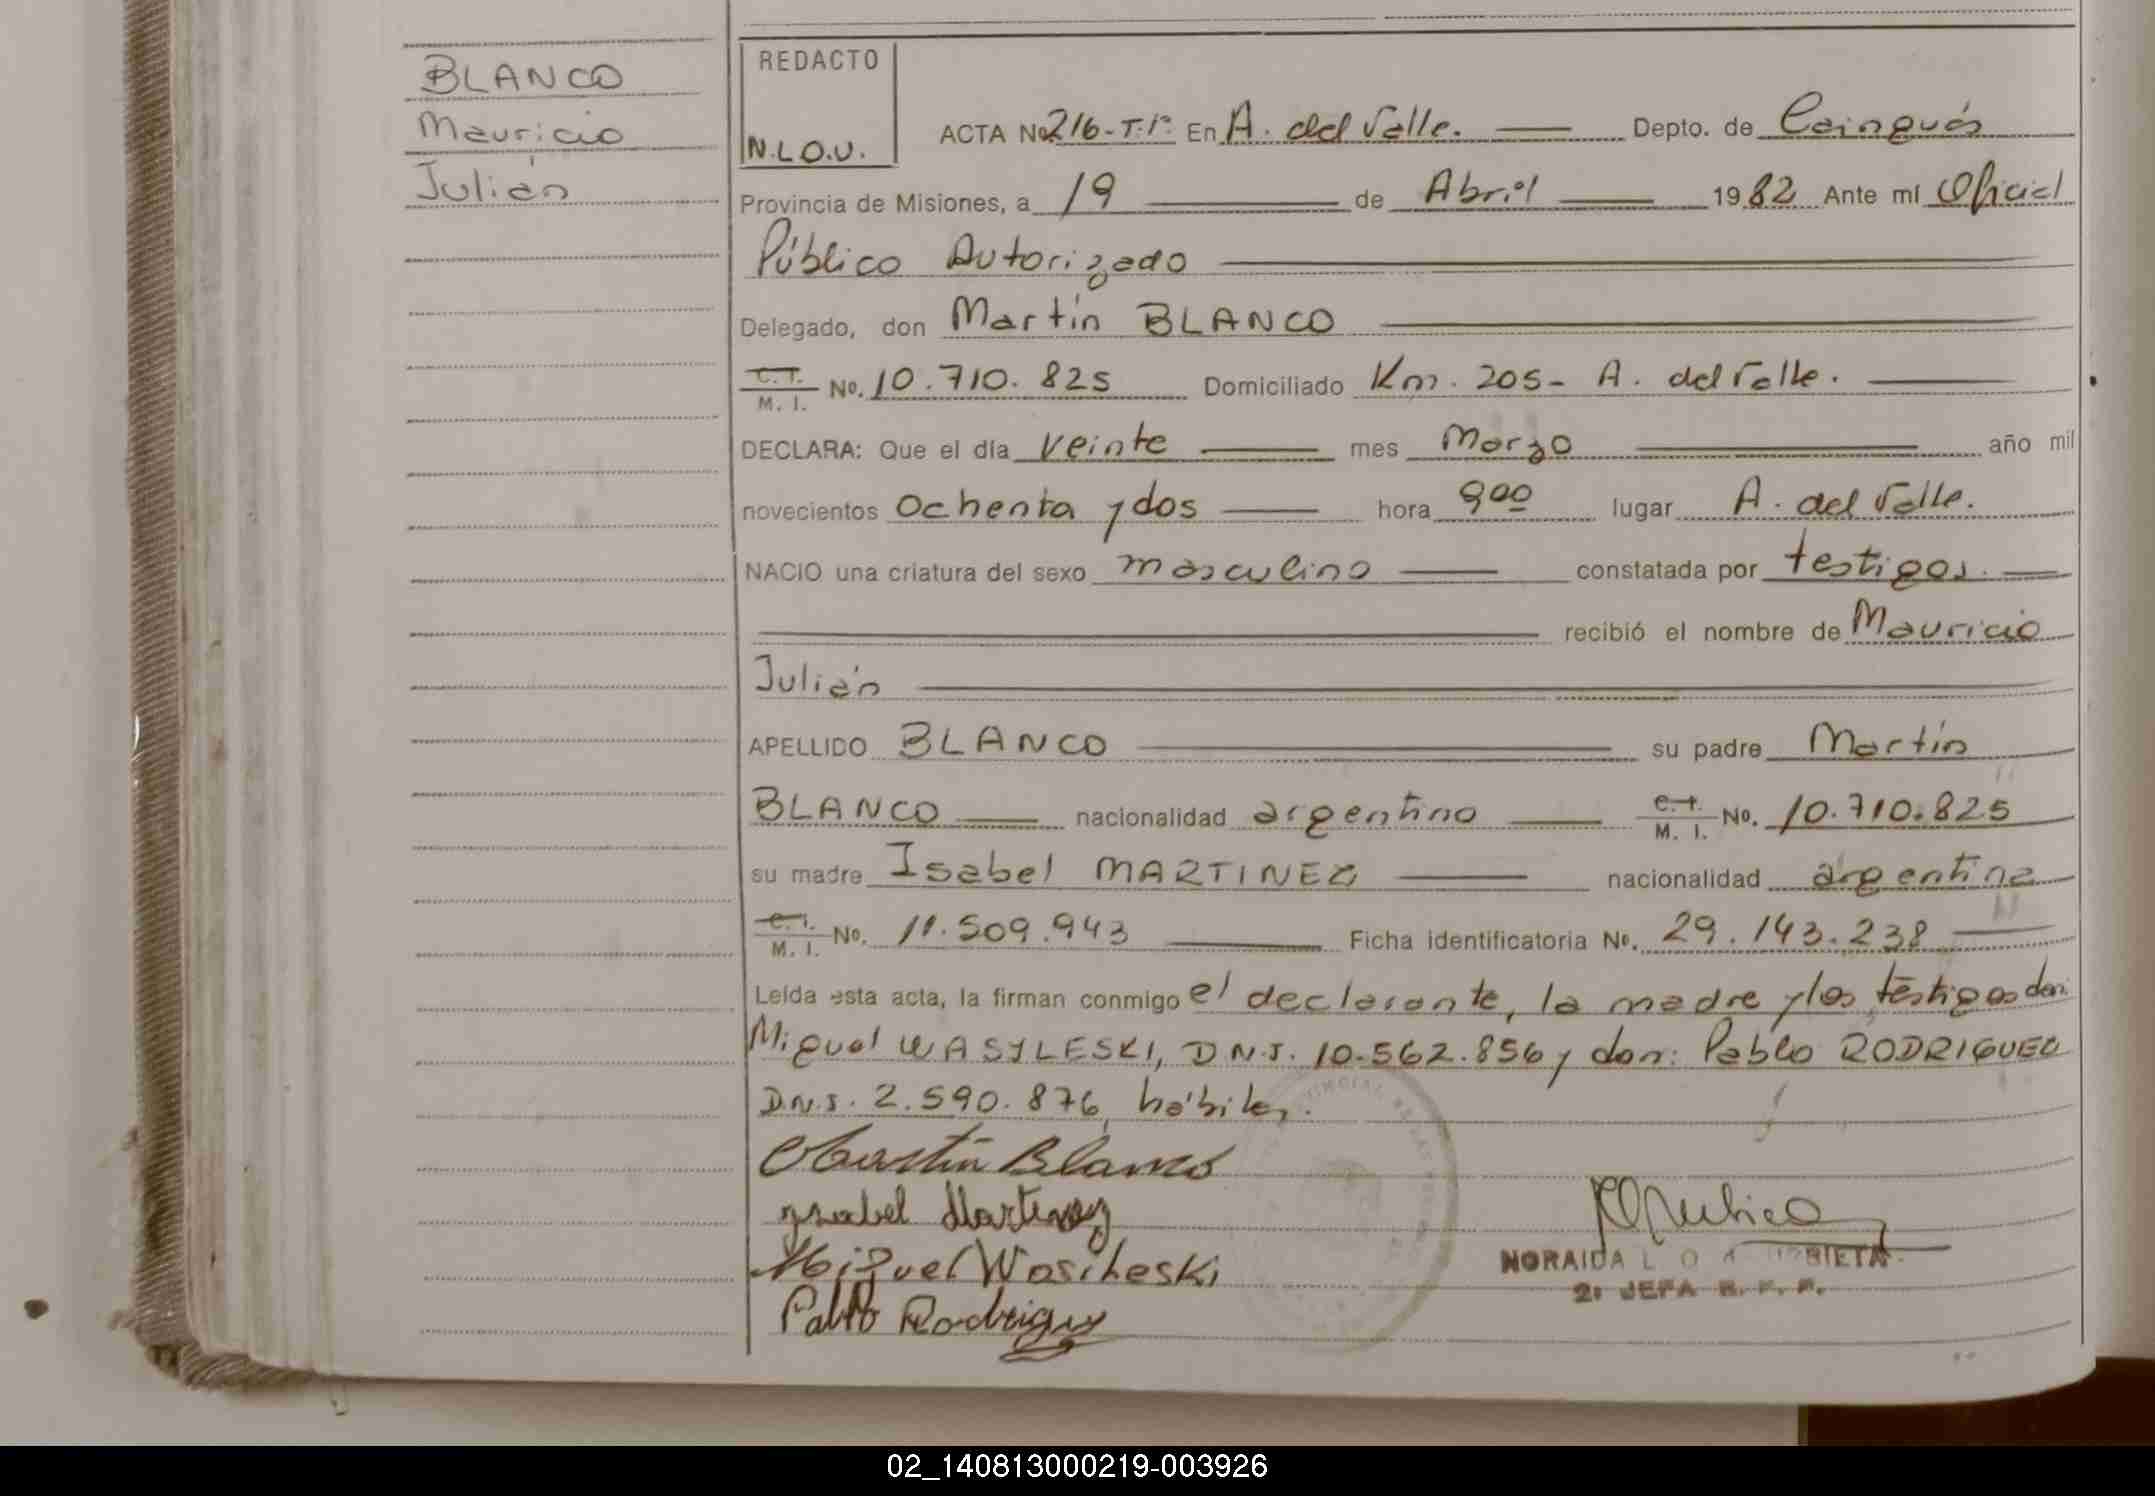 BLANCO
Mauricio
Julián
REDACTO
N.L.O.U.
ACTA No. 216-T.1º En A. del Valle. Depto. de Cainguás
Provincia de Misiones, a 19 de Abril 1982 Ante mí Oficial
Público Autorizado
Delegado, don Martín BLANCO
C.I. M. I. No. 10.710.825 Domiciliado Km. 205- A. del Valle.
DECLARA: Que el día veinte mes Marzo año mil
novecientos ochenta y dos hora 9 00 lugar A. del Valle.
NACIO una criatura del sexo masculino constatada por testigos.
recibió el nombre de Mauricio
Julián
APELLIDO BLANCO su padre Martín
BLANCO nacionalidad argentino C.I. M. I. No. 10.710.825
su madre Isabel MARTINEZ nacionalidad argentina
C.I. M. I. No. 11.509.943 Ficha identificatoria No. 29.143.238
Leída esta acta, la firman conmigo el declarante, la madre y los testigos don:
Miguel WASYLESKI, D.N.I. 10.562.856 y don: Pablo RODRIGUEZ
D.N.I. 2.590.876, hábiles.
Martín Blanco
Ysabel Martinez
Miguel Wasileski
Pablo Rodriguez
NORAIDA L. O URBIETA
2º JEFA R. P. P.
02_140813000219-003926